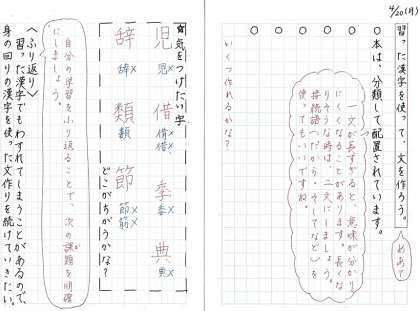 4/20(月)
習った漢字を使って、文を作ろう。
めあて
本は、分類して配置されています。
一文が長すぎると、意味が分かり
にくくなることがあります。長くな
りそうな時は、二文にしましょう。
接続語(だから・そしてなど)を
使ってもいいですね。
いくつ作れるかな?
☆気をつけたい字
児 借 季 典
児× 借× 借× 季× 典×
辞 類 節
辞× 類 節× 筋×
どこがちがうかな?
自分の学習をふり返ることで、次の課題を明確
にしましょう。
〈ふり返り〉
習った漢字でもわすれてしまうことがあるので、
身の回りの漢字を使った文作りを続けていきたい。